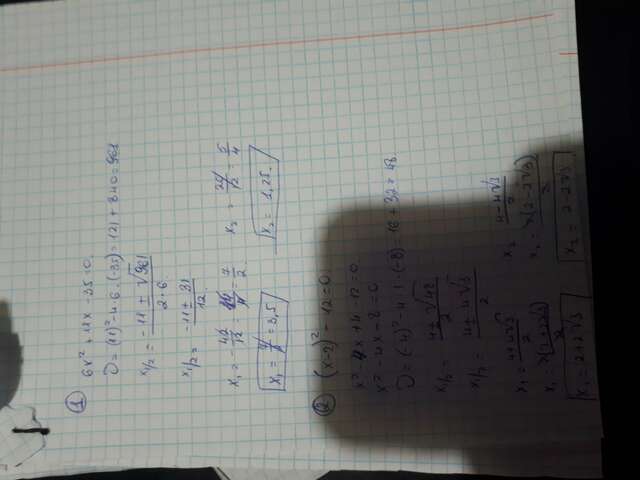 ① 6x² + 11x - 35 = 0.
D = (11)² - 4 · 6 · (-35) = 121 + 840 = 961
x₁/₂ = (-11 ± √961)/(2 · 6)
x₁/₂ = (-11 ± 31)/12
x₁ = -42/12 = 7/2 x₂ = 20/12 = 5/4
x₁ = 3,5 x₂ = 1,25.
② (x-2)² - 12 = 0.
x² - 4x + 4 - 12 = 0
x² - 4x - 8 = 0
D = (-4)² - 4 · 1 · (-8) = 16 + 32 = 48.
x₁/₂ = (4 ± √48)/2
x₁/₂ = (4 ± 4√3)/2
x₁ = (4+4√3)/2 x₂ (4-4√3)/2
x₁ = 2(2+2√3)/2 x₂ = 2(2-2√3)/2
x₁ = 2+2√3 x₂ = 2-2√3